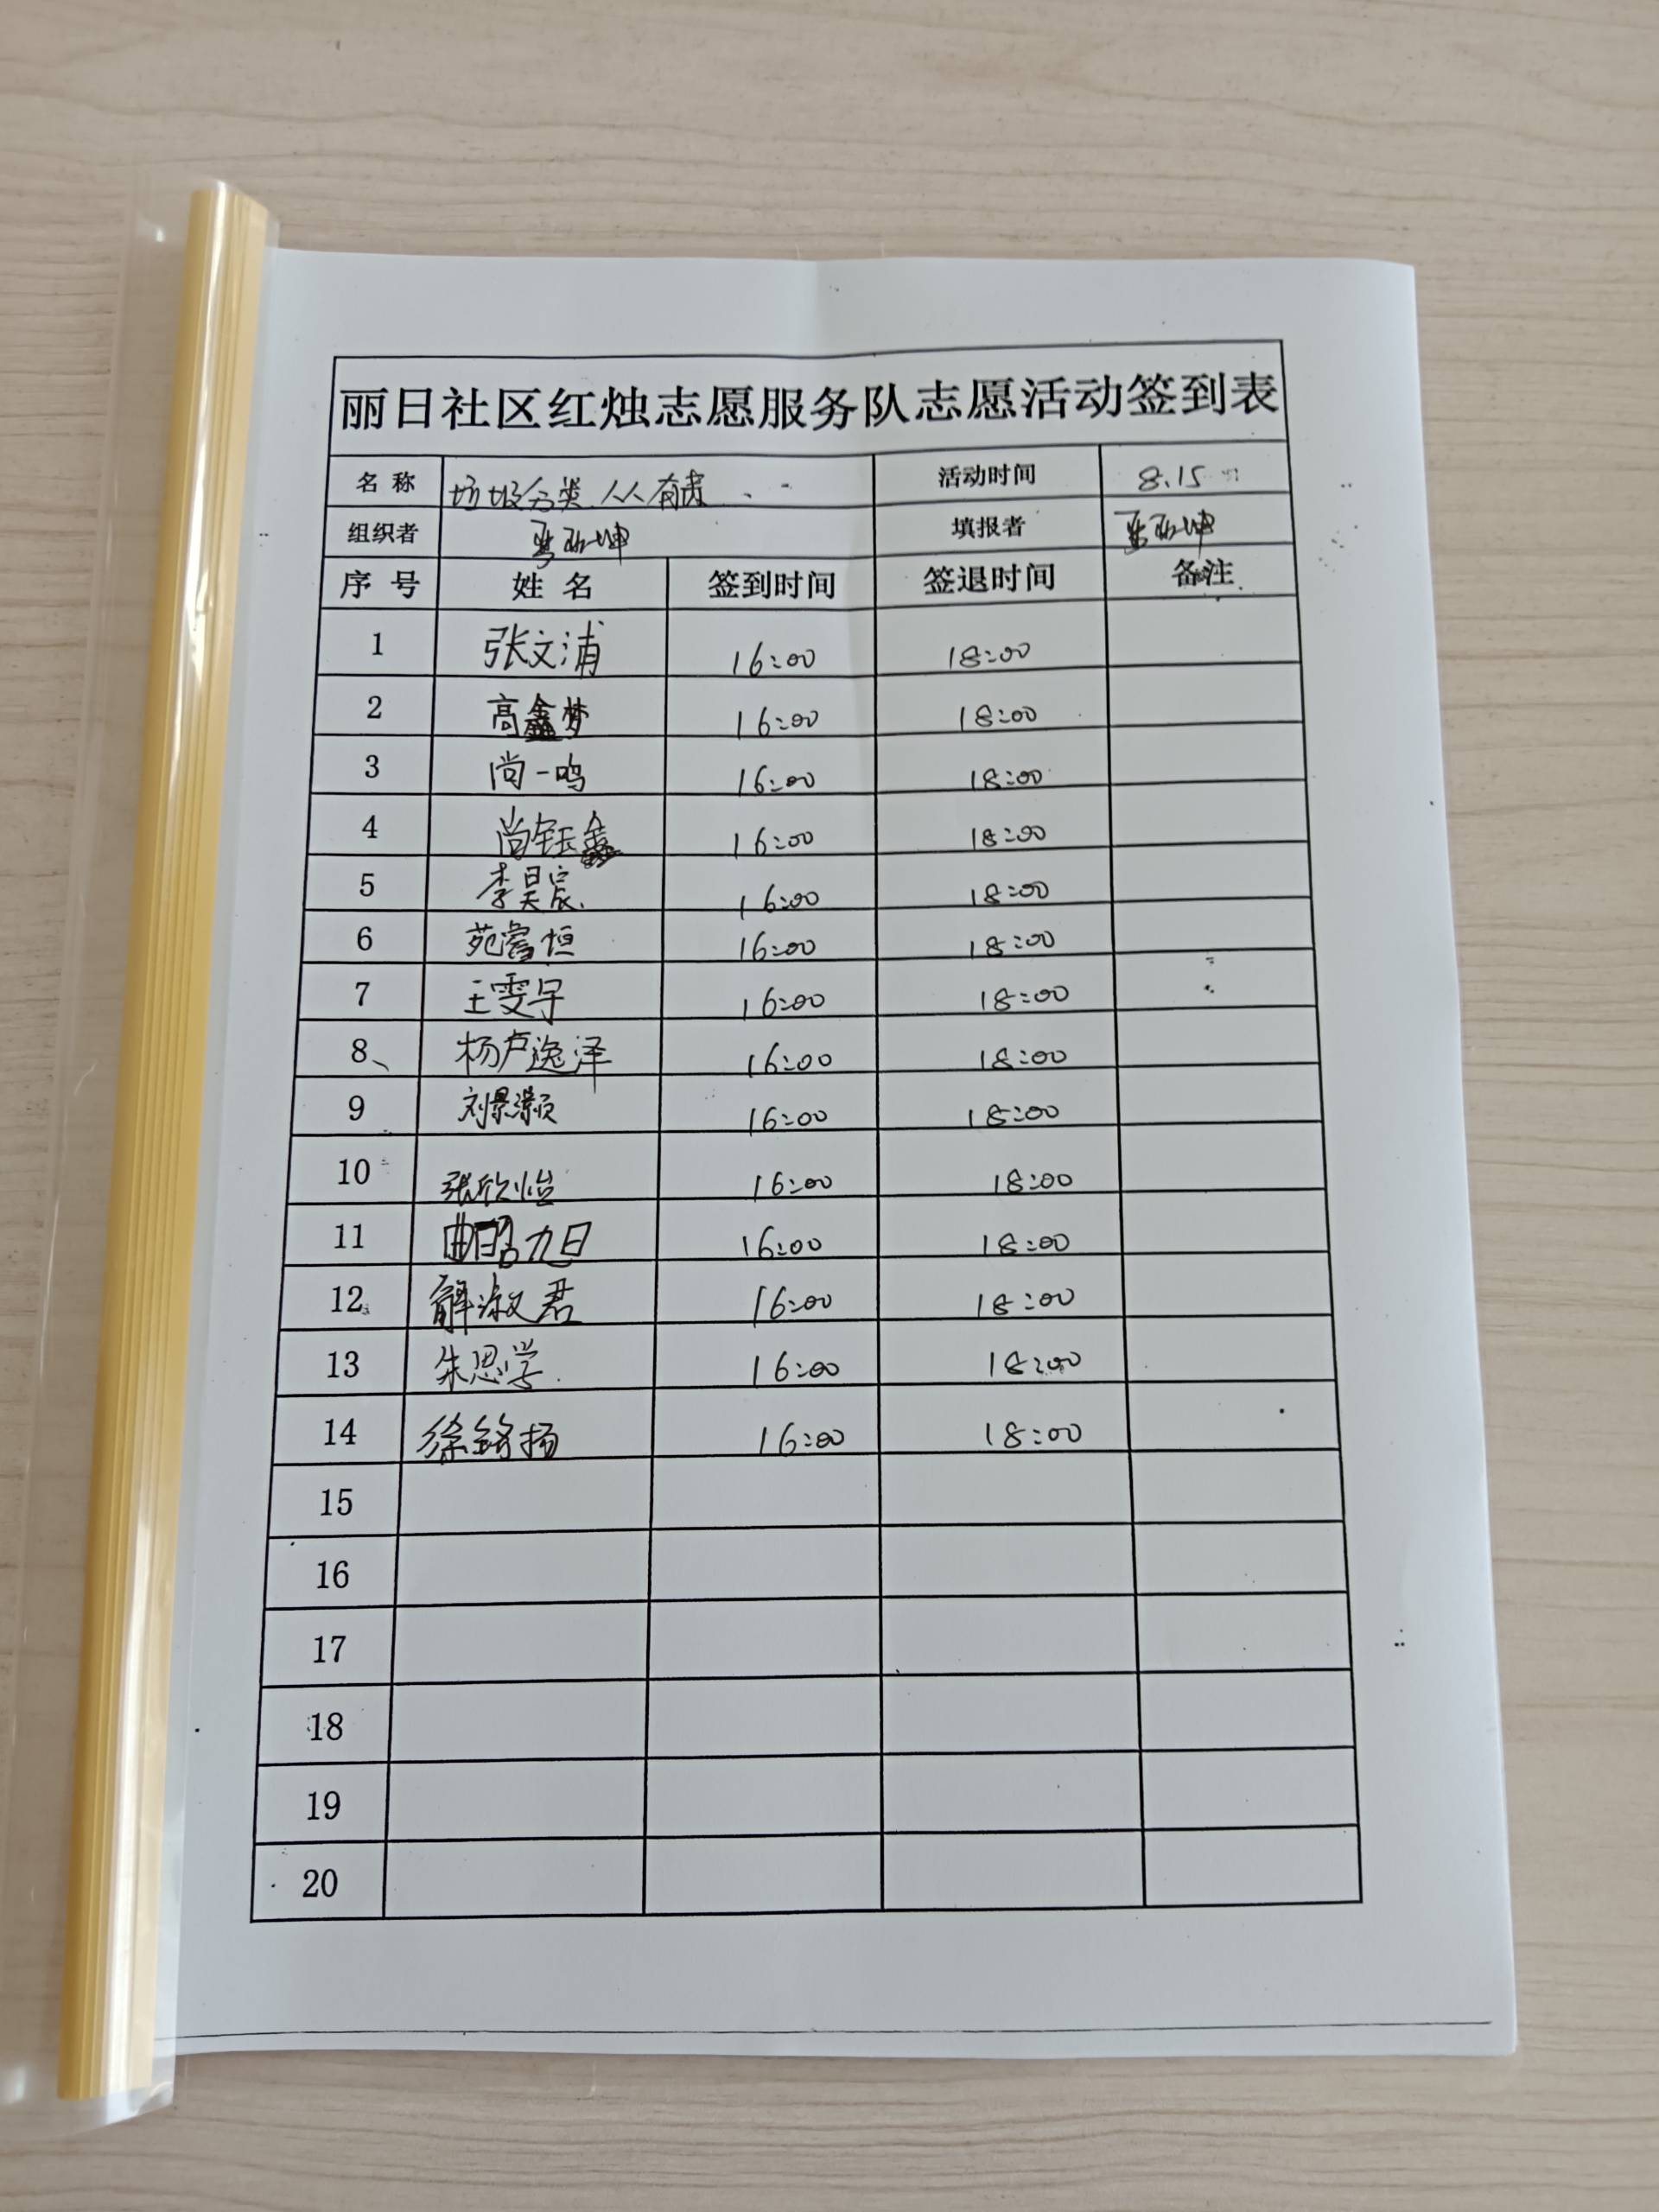 丽日社区红烛志愿服务队志愿活动签到表
名 称 垃圾分类 人人有责 活动时间 8.15
组织者 填报者
序 号 姓 名 签到时间 签退时间 备注
1 张文浦 16:00 18:00
2 高鑫梦 16:00 18:00
3 尚一鸣 16:00 18:00
4 尚钰鑫 16:00 18:00
5 李昊宸 16:00 18:00
6 16:00 18:00
7 王雯宇 16:00 18:00
8 杨卢逸泽 16:00 18:00
9 刘景灏 16:00 18:00
10 张欣怡 16:00 18:00
11 曲昭旭 16:00 18:00
12 解淑君 16:00 18:00
13 朱思学 16:00 18:00
14 徐铭扬 16:00 18:00
15
16
17
18
19
20